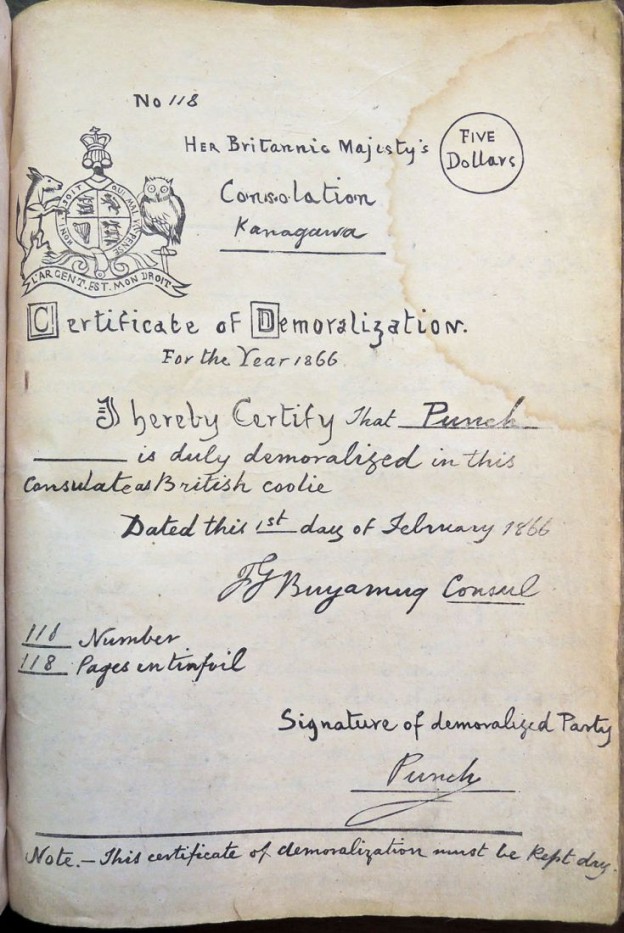 No 118
Her Britannic Majesty's
FIVE
Dollars
Consolation
Kanagawa
HON SOIT QUI MAL Y PENSE
L'ARGENT. EST. MON DROIT
Certificate of Demoralization.
For the Year 1866
I hereby Certify That Punch
is duly demoralized in this
Consulate as British coolie
Dated this 1st day of February 1866
JG Buyamug Consul
118 Number
118 Pages in tinfoil
Signature of demoralized Party
Punch
Note.— This certificate of demoralization must be Kept dry.